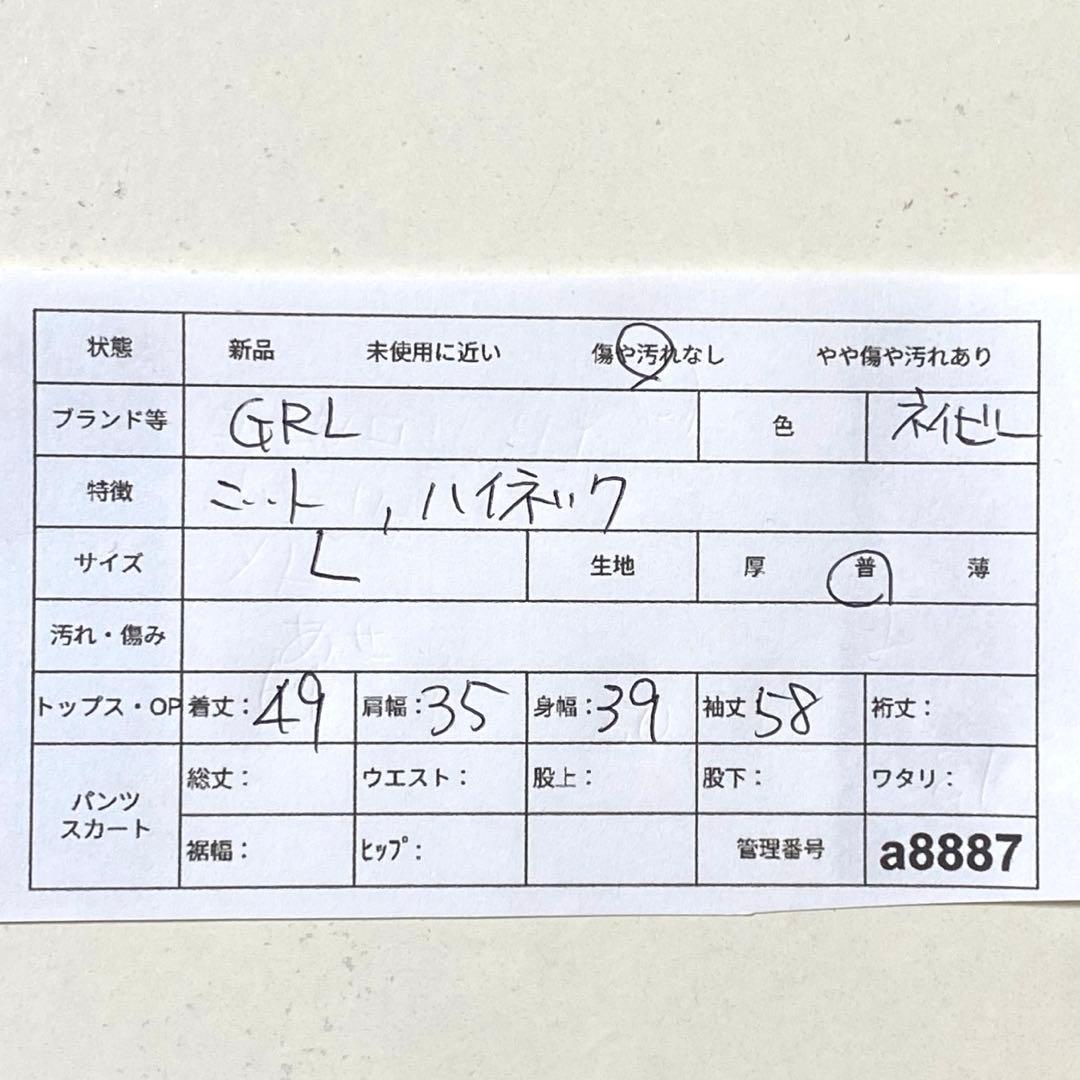 状態 新品 未使用に近い 傷や汚れなし やや傷や汚れあり
ブランド等 GRL 色 ネイビー
特徴 ニット , ハイネック
サイズ L 生地 厚 普 薄
汚れ・傷み
トップス・OP 着丈: 49 肩幅: 35 身幅: 39 袖丈 58 裄丈:
パンツ スカート 総丈: ウエスト: 股上: 股下: ワタリ:
裾幅: ヒップ: 管理番号 a8887